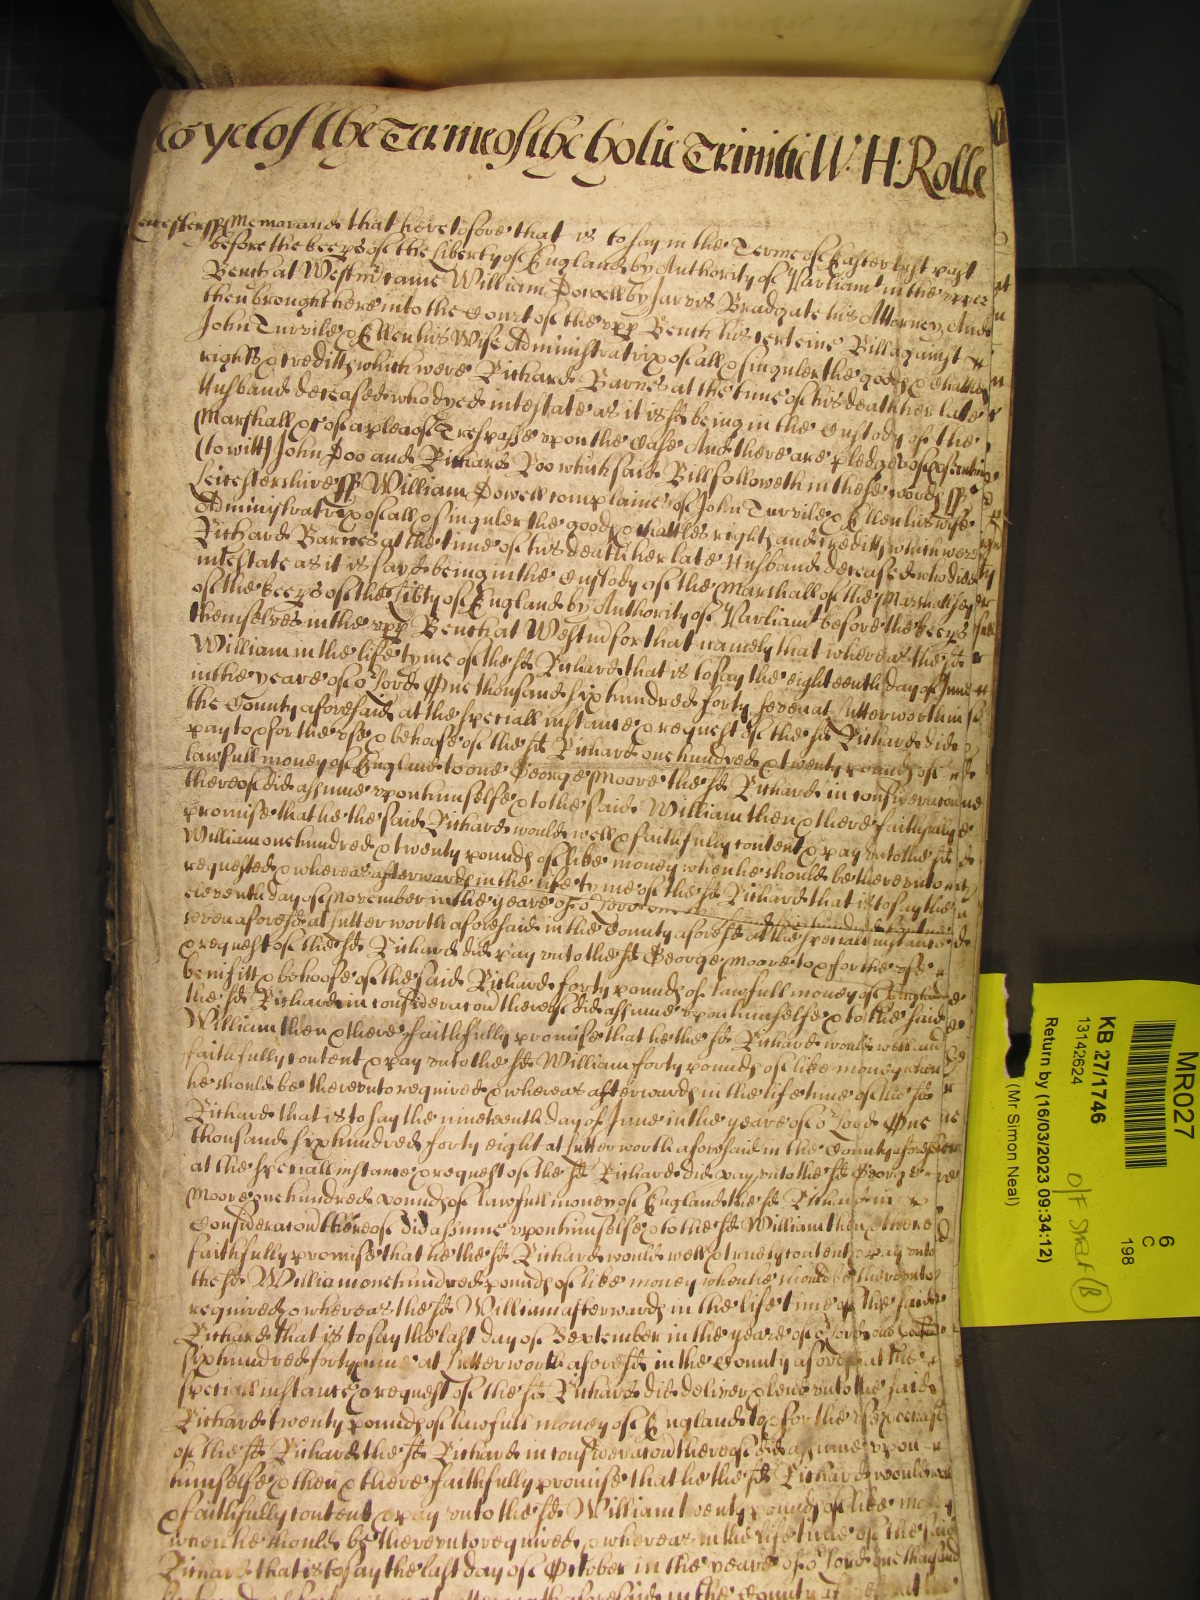 yet of the Terme of the holie Trinitie W: H: Rolle
Leicester ss Memorand that heretofore that is to say in the Terme of Easter last past
before the keeps of the Liberty of England by Authority of Parliamt in the upper
Bench at Westmr came William Powell by Jarvis Bradgate his Attorney And
then brought here into the Court of the upp Bench his certeine Bill against
John Turvile & Ellen his Wife Administratrix of all & singuler the goods & chattles
rights & creditts which were Richard Barnes at the time of his death her late
Husband deceased who dyed intestate as it is sd being in the Custody of the
Marshall &c of a plea of Trespasse upon the Case And there are pledges of prosecuting
(to witt) John Doo and Richard Roo which said Bill followeth in these words ss
Leicestershire ss William Powell complaines of John Turvile & Ellen his wife
Administratrix of all & singuler the goods & chattles rights and creditts which were
Richard Barnes at the time of his death her late Husband deceased who died
intestate as it is sayd being in the Custody of the Marshall of the Marshalsey
of the keeps of the Libty of England by Authority of Parliamt before the keeps
themselves in the upp Bench at Westm for that namely that whereas the sd
William in the life tyme of the sd Richard that is to say the eighteenth day of June
in the yeare of or Lord One thousand six hundred forty seven at Lutterworth in
the County aforesaid at the speciall instance & request of the sd Richard did
pay to & for the use & behoofe of the sd Richard one hundred & twenty pounds of
lawfull money of England to one George Moore the sd Richard in consideracon
thereof did assume upon himselfe & to the said William then & there faithfully
promise that he the said Richard would well & faithfully content & pay unto the sd
William one hundred & twenty pounds of like money when he should be thereunto
requested & whereas afterwards in the life tyme of the sd Richard that is to say the
eleventh day of November in the yeare of or Lord one thousand six hundred fortie
seven aforesd at Lutterworth aforesaid in the County aforesd at the speciall instance
& request of the sd Richard did pay unto the sd George Moore to & for the use
benifitt & behoofe of the said Richard forty pounds of lawfull money of England
the sd Richard in consideracon thereof did assume upon himselfe & to the said
William then & there faithfully promise that he the sd Richard would well and
faithfully content & pay unto the sd William forty pounds of like money when
he should be thereunto required & whereas afterwards in the life time of the sd
Richard that is to say the nineteenth day of June in the yeare of or Lord One
thousand six hundred forty eight at Lutterworth aforesaid in the County aforesd
at the speciall instance & request of the sd Richard did pay unto the sd George
Moore one hundred pounds of lawfull money of England the sd Richard in
Consideracon thereof did assume upon himselfe & to the sd William then & there
faithfully promise that he the sd Richard would well & truely content & pay unto
the sd William one hundred pounds of like money when he should be thereunto
required & whereas the sd William afterwards in the life time of the said
Richard that is to say the last day of September in the yeare of or Lord one
six hundred forty nine at Lutterworth aforesd in the County aforesd at the
speciall instance & request of the sd Richard did deliver & lend unto the said
Richard twenty pounds of lawfull money of England to & for the use
of the sd Richard the sd Richard in consideracon thereof did assume upon
himselfe & then & there faithfully promise that he the sd Richard would well
& faithfully content & pay unto the sd William twenty pounds of like money
when he should be thereunto required & whereas in the life time of the said
Richard that is to say the last day of October in the yeare of or Lord one thousand
in the County
MR027
KB 27/1746
13142624
Return by (16/03/2023 09:34:12)
(Mr Simon Neal)
6
C
198
O/F
(B)